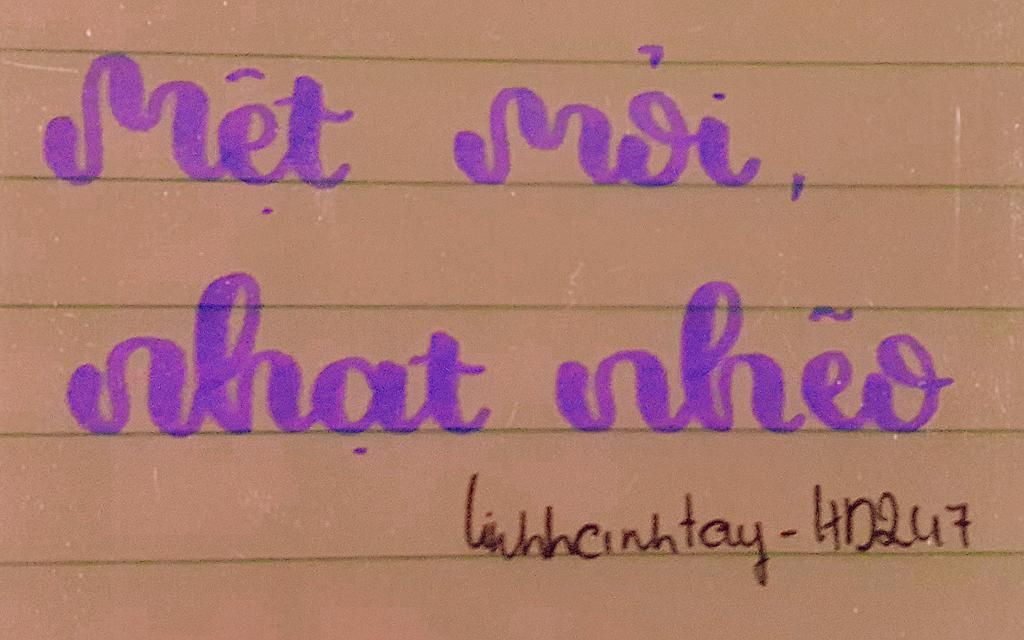 Mệt mỏi,
nhạt nhẽo
linhhcinhtay - HD247